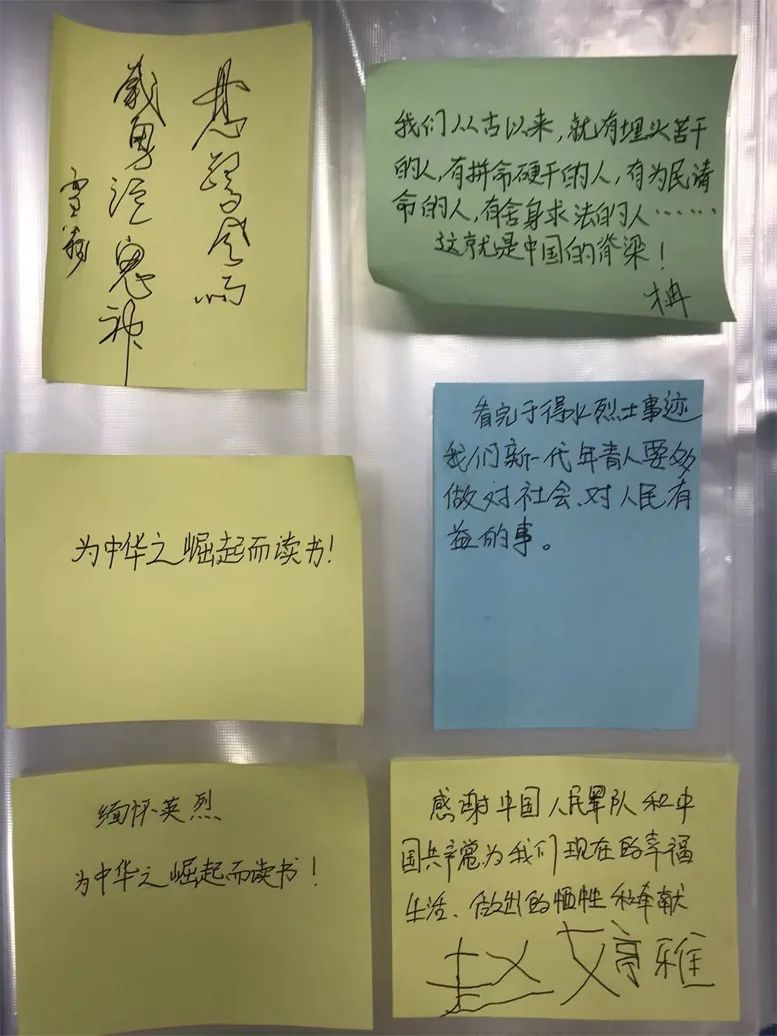 风雨
義勇泣鬼神
雪翁
我们从古以来，就有埋头苦干
的人，有拼命硬干的人，有为民请
命的人，有舍身求法的人……
这就是中国的脊梁！
看完于得水烈士事迹
我们新一代年青人要多
做对社会、对人民有
益的事。
为中华之崛起而读书！
缅怀英烈
为中华之崛起而读书！
感谢中国人民军队和中
国共产党为我们现在的幸福
生活、做出的牺牲和奉献
赵婷雅